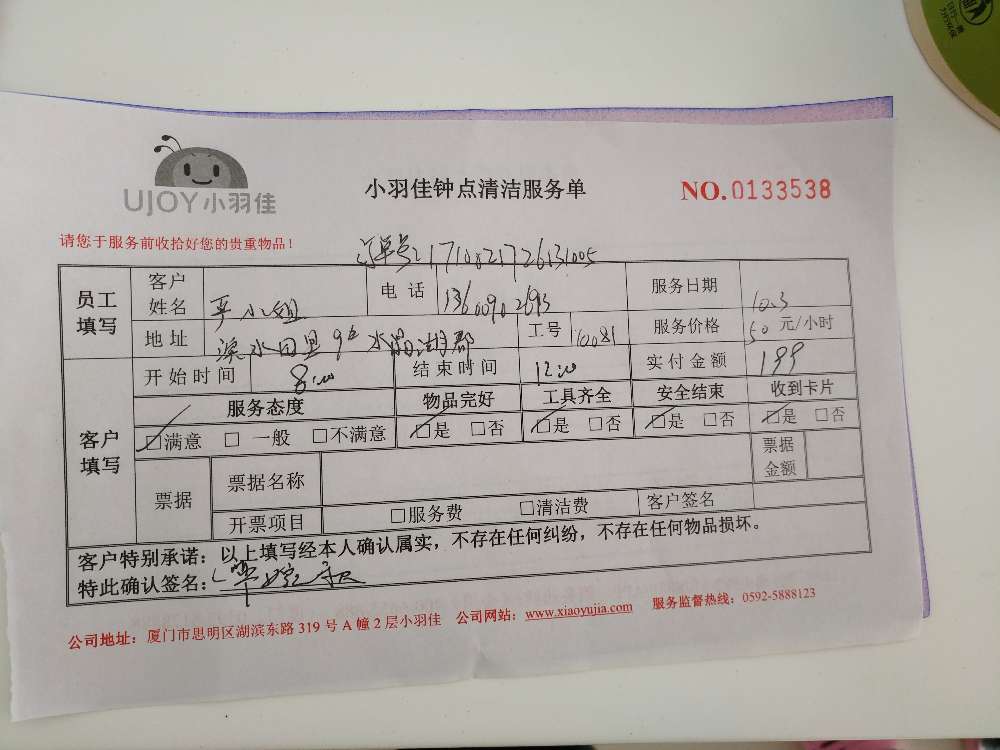 UJOY小羽佳
小羽佳钟点清洁服务单
NO.0133538
请您于服务前收拾好您的贵重物品！
订单号:1710821726131005
员工填写 客户姓名 小姐 电话 13600902693 服务日期 10.3
地址 水田里9# 水晶湖郡 工号 10081 服务价格 50元/小时
开始时间 8:00 结束时间 12:00 实付金额 199
客户填写 服务态度 物品完好 工具齐全 安全结束 收到卡片
☑满意 □一般 □不满意 ☑是 □否 ☑是 □否 ☑是 □否 ☑是 □否
票据 票据名称 票据金额
开票项目 □服务费 □清洁费 客户签名
客户特别承诺：以上填写经本人确认属实，不存在任何纠纷，不存在任何物品损坏。
特此确认签名：
公司地址：厦门市思明区湖滨东路319号A幢2层小羽佳 公司网站：www.xiaoyujia.com 服务监督热线：0592-5888123